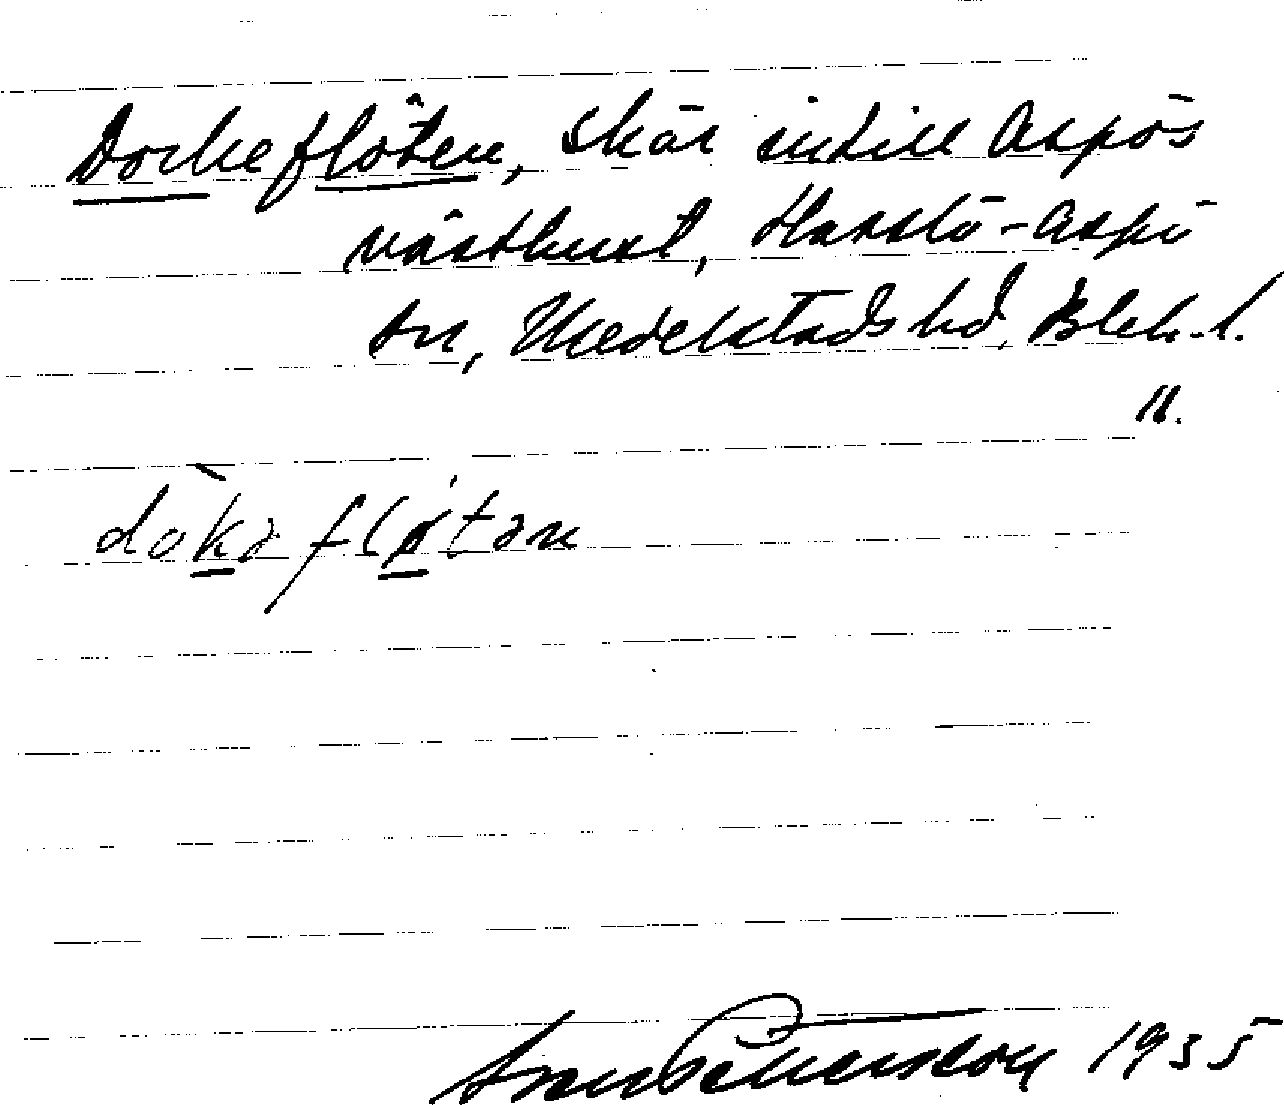 Dockeflöten, skär intill Aspös
västkust, Hasslö-Aspö
sn, Medelstads hd, Blek. l.
11.
dòkəfløtən
Pettersson 1935